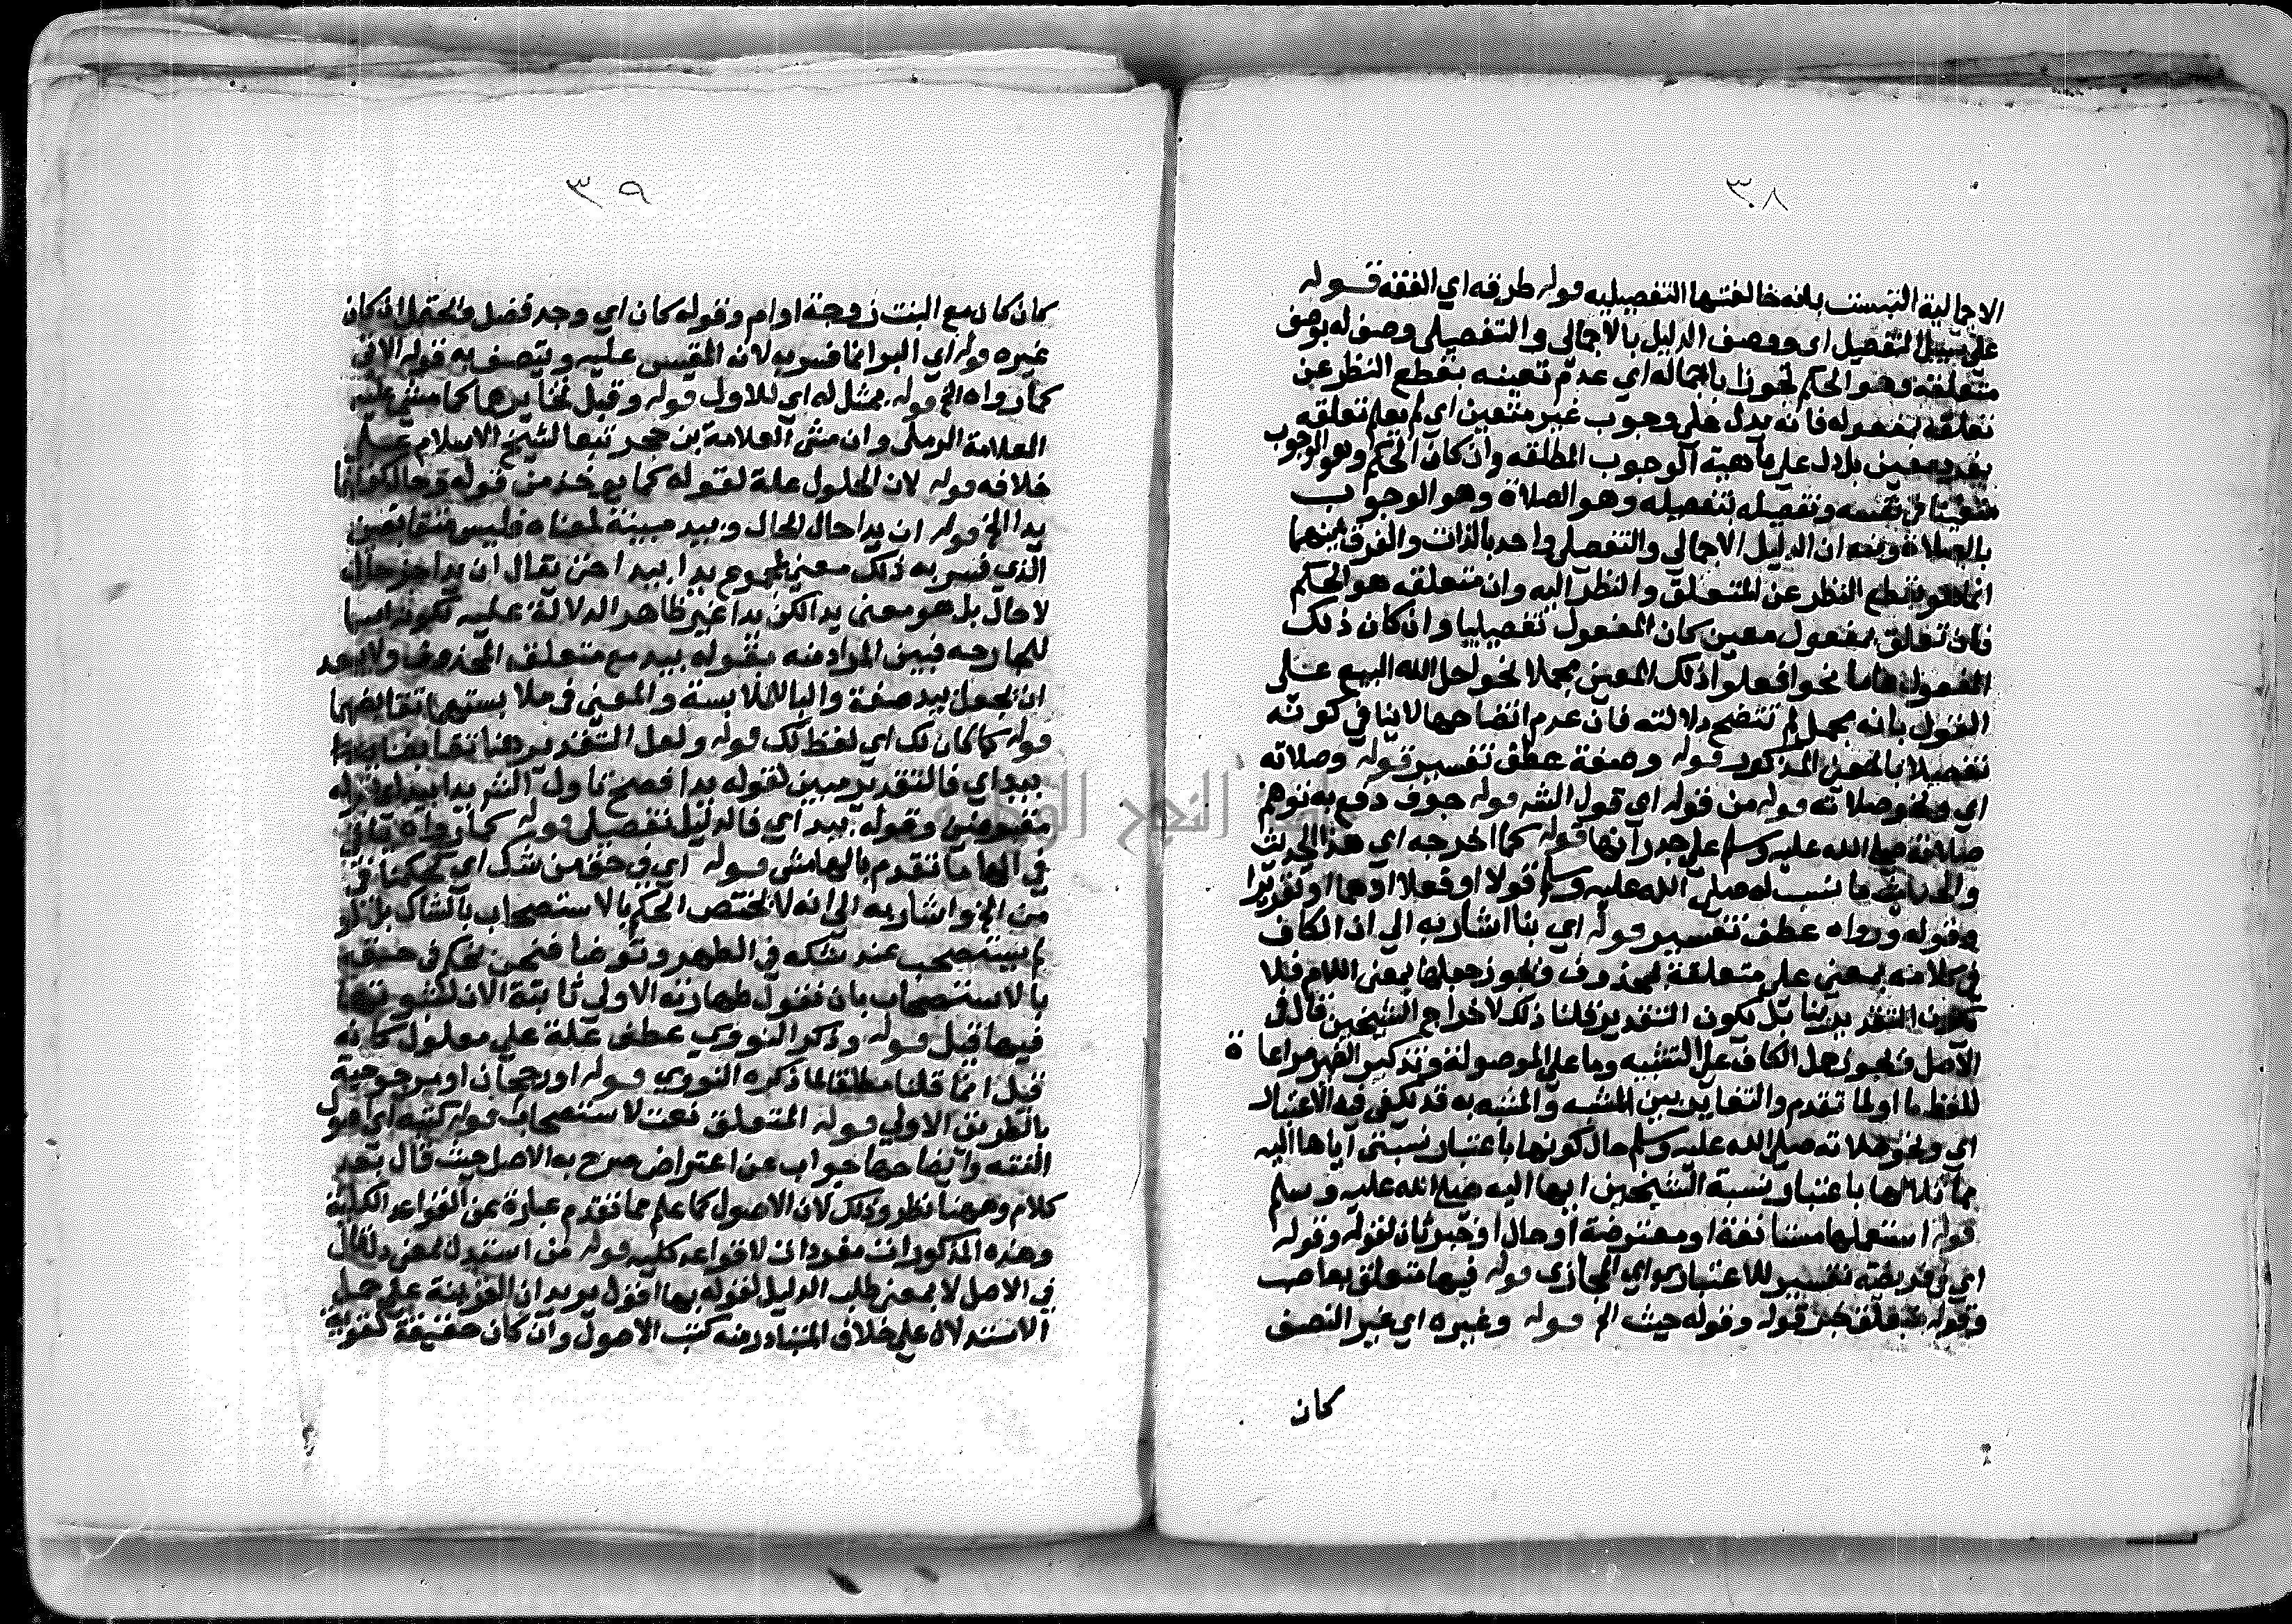 ٣٨
الاجمالية التبست بانه خالفتها التفصيليه قوله طرقه اي الفقه قوله
على سبيل التفصيل اي ووصف الدليل بالاجمالي والتفصيلي وصف له بوصف
متعلقه وهو الحكم تجوزا باجماله اي عدم تعينه بقطع النظر عن
تعلقه بمفعوله فانه يدل على وجوب غير متعين اي لم يعلم تعلقه
بفرد معين بل دل على ماهية الوجوب المطلقه وان كان الحكم وهو الوجوب
متعينا في نفسه وتفصيله لتفصيله وهو الصلاة وهو الوجوب
بالصلاة ومنه ان الدليل الاجمالي والتفصيلي واحد بالذات والفرق بينهما
انما هو بقطع النظر عن المتعلق والنظر اليه وان متعلقه هو الحكم
فان تعلق بمفعول معين كان المفعول تفصيليا وان كان ذلك
المفعول عاما نحو افعلوا ذلك المعين مجملا نحو احل الله البيع على
القول بانه مجمل لم تتضح دلالته فان عدم اتضاحها لا ينافي كونه
تفصيلا بالمعنى المذكور قوله وصفة عطف تفسير قوله وصلاته
اي ونحو صلاته قوله من قوله اي قول الشر قوله جوف دفع به توهم
صلاته صلى الله عليه وسلم على جدرانها قوله كما اخرجه اي هذا الحديث
والحديث ما نسب له صلى الله عليه وسلم قولا او فعلا او هما او تقريرا
وقوله ورواه عطف تفسير قوله اي بنا اشار به الى ان الكاف
في كلامه بمعنى على متعلقة بمحذوف ويجوز جعلها بمعنى اللام فلا
يكون التقدير بنا بل يكون التقدير قلنا ذلك لاخراج الشيخين قال في
الاصل ويجوز حمل الكاف على التشبيه وما على الموصولة وتذكير الضمير مراعاة
للفظ ما اولما تقدم والتغاير بين المشبه والمشبه به قد يكفي فيه الاعتبار
اي ونحو صلاته صلى الله عليه وسلم حال كونها باعتبار نسبتي اياها اليه
مماثلا لها باعتبار نسبة الشيخين اياها اليه صلى الله عليه وسلم
قوله استعملها مستانفة او معترضة او حال او خبر ثان لقوله وقوله
اي في فريضته تفسير للاعتبار اي المجازي قوله فيها متعلق بعاصب
وقوله متعلق خبر قوله وقوله حيث الخ قوله وغيره اي غير النصف
كان
٣٩
كان كان مع البنت زوجة او ام وقوله كان اي وجد فضل فيحتمل ان كان
غيره قوله اي البر انما فسر به لانه المقيس عليه ويتصف به قوله الاتي
كما رواه الخ قوله ممثل له اي للاول قوله وقبل تغايرها كما مشى عليه
العلامة الرملي وان مشى العلامة بن حجر تبعا لشيخ الاسلام على
خلافه قوله لان الحلول علة لقوله كما يوخذ من قوله وحال كونها
يدا الخ قوله ان يدا حال لحال وبيد مبينة لمعناه فليس متقابضين
الذي فسر به ذلك معنى لمجموع يدا بيد احتى يقال ان يدا جزء حال
لا حال بل هو معنى يدا لكن يدا غير ظاهر الدلالة عليه لكونه اسما
للجارحه فبين المراد منه بقوله بيد مع متعلق المحذوف ولا يبعد
ان يجعل بيد صفة والبا للملابسة والمعنى في ملابستهما تقابضهما
قوله كما كان لك اي لفظ لك قوله ولعل التقدير هنا تقابضا
بيد اي فالتقدير مبين لقوله يدا فصح تاول الشر يدا بيد اي بقوله
مقبوضين وقوله بيد اي فالدليل تفصيل قوله كما رواه ياتي
في الها ما تقدم بالهامش قوله اي في حق من شك اي حكمنا في
من الخ واشار به الى انه لا يختص الحكم بالاستصحاب بالشاك بل لو
لم يستصحب عند شكه في الطهر وتوضا فنحن نحكم في حقه
بالاستصحاب بان نقول طهارته الاولى ثابتة الان لثبوتها
فيما قبل قوله وذكر النووي عطف علة على معلول كانه
قيل انما قلنا مطلقا لما ذكره النووي قوله او رجحان او مرجوحية
بالطريق الاولى قوله المتعلق نعت لاستصحاب قوله كتبه اي اصول
الفقه وايضاحها جواب عن اعتراض صرح به الاصل حيث قال بعد
كلام وههنا نظر وذلك لان الاصول كما علم مما تقدم عبارة عن القواعد الكلية
وهذه المذكورات مفردات لا قواعد كليه قوله من استدل بمعنى دل قال
في الاصل لا بمعنى طلب الدليل لقوله بها اقول يريد ان القرينة على حمل
الاستدلال على خلاف المتبادر منه كتب الاصول وان كان حقيقة لغوية